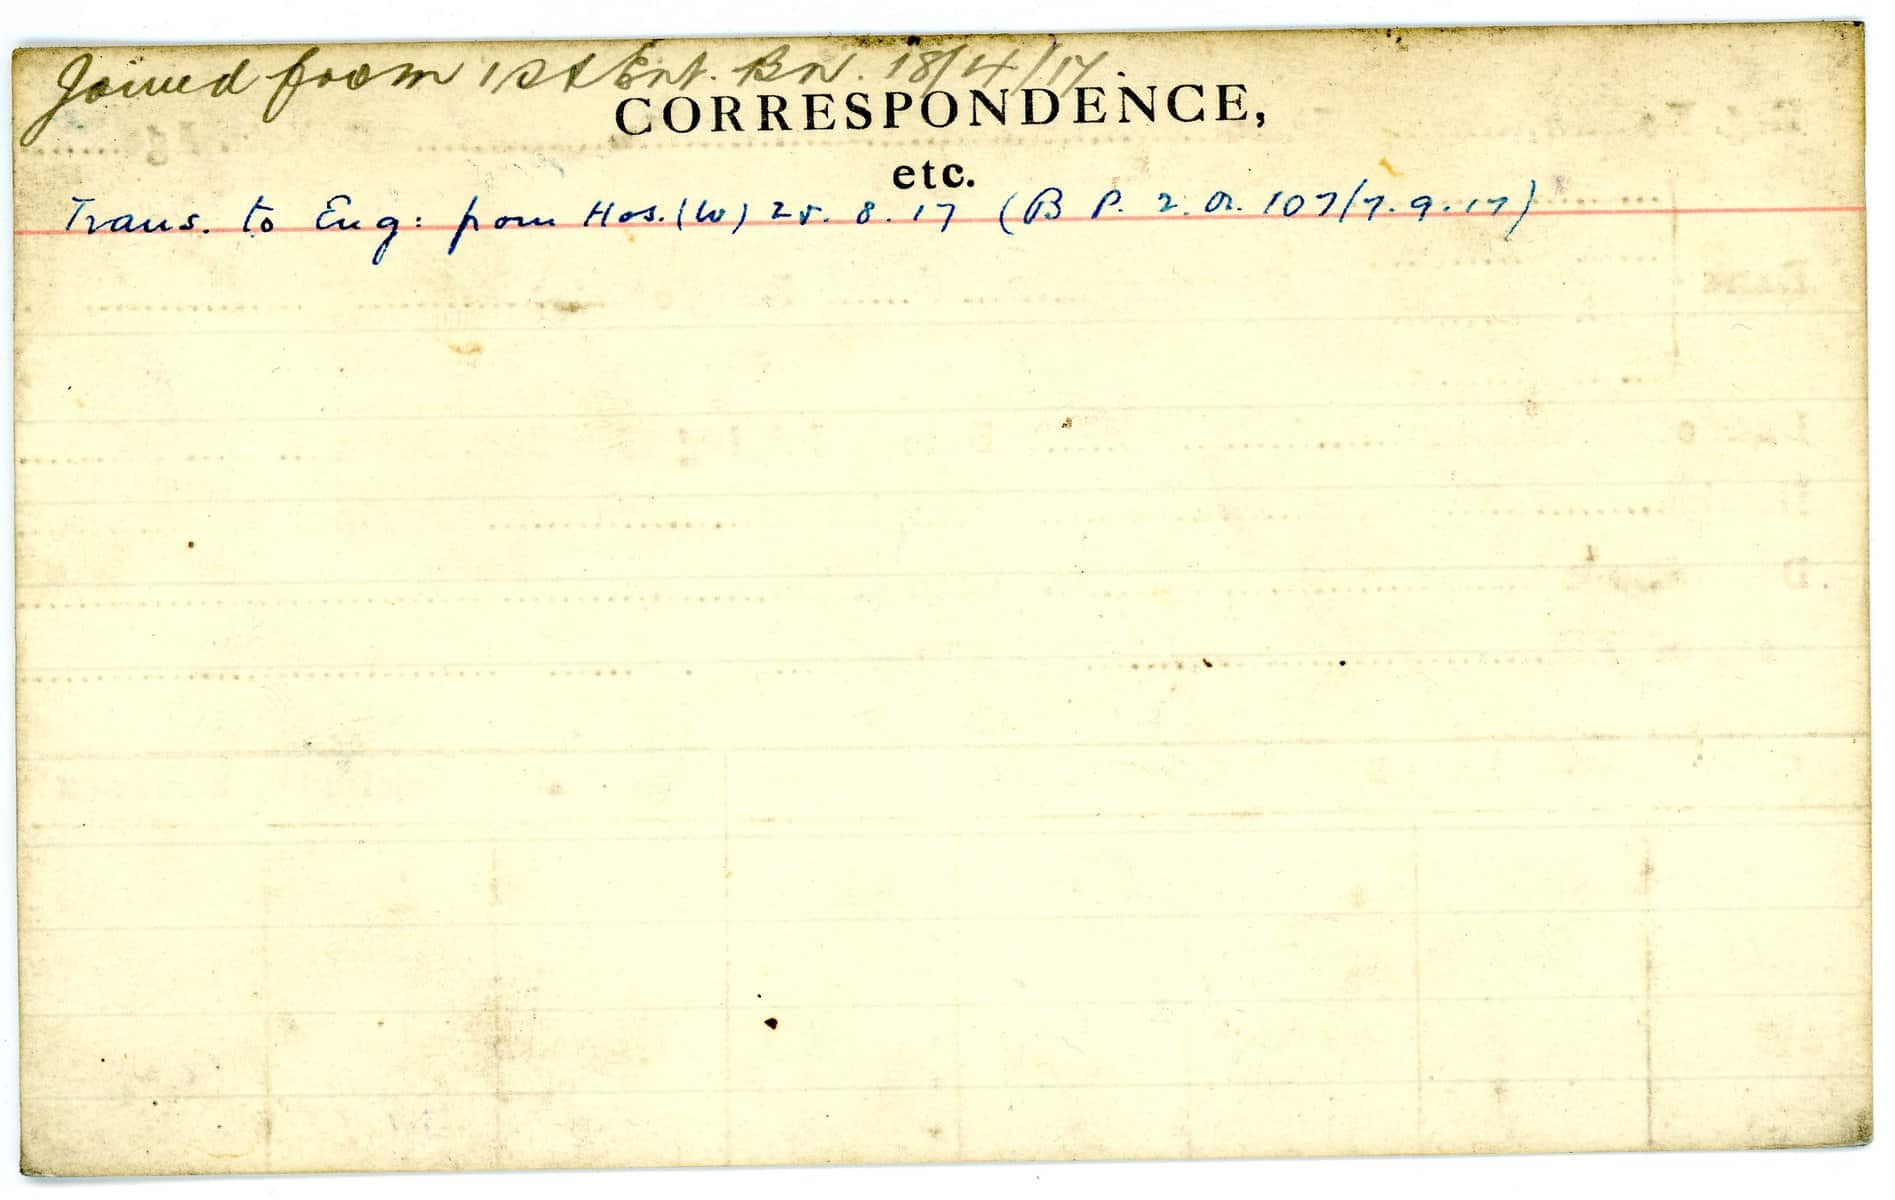 Joined from 1st Ent. Bn. 18/4/17.
CORRESPONDENCE,
etc.
Trans. to Eng: from Hos. (W) 25. 8. 17 (B P. 2. O. 107/7.9.17)